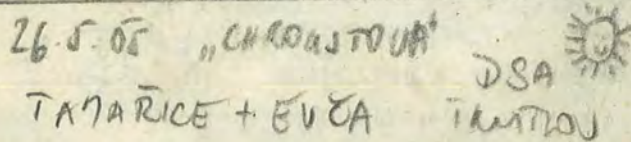 26.5.05 „CHROUSTOVA“
DSA
TATARICE + EVČA TRUTNOV